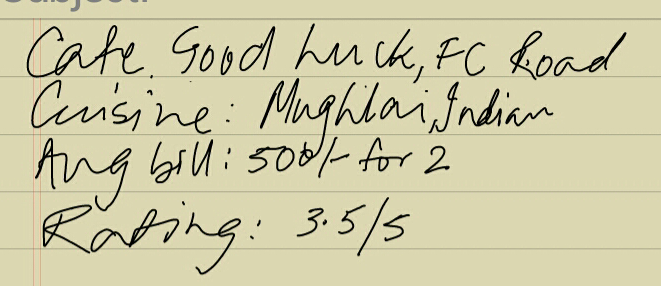 Subject:
Cafe Good Luck, FC Road
Cuisine: Mughlai, Indian
Avg bill: 500/- for 2
Rating: 3.5/5